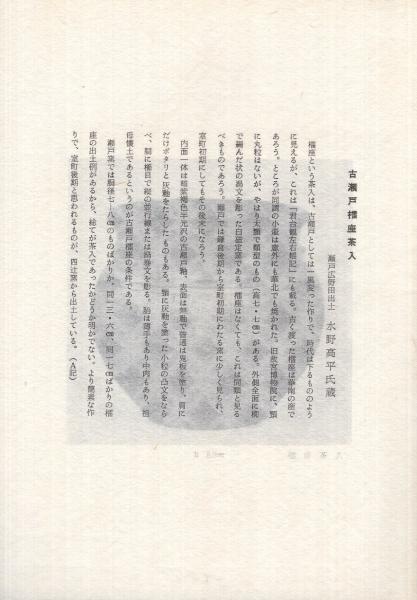 古瀬戸擂座茶入
瀬戸広野田出土 水野高平氏蔵
擂座という茶入は、古瀬戸としては一風変った作りで、時代は下るもののよう
に見えるが、これは「君台観左右帳記」にも載る。古く渡った擂座は華南の産で
あろう。ところが同調の小壷は意外にも華北でも焼かれた。旧故宮博物院に、頸
に丸粒はないが、やはり太頸で類型のもの(高七・七㎝)がある。外側全面に櫛
で刷んだ状の渦文を彫った白磁定窯である。擂座はなくても、これは同類と見る
べきものであろう。瀬戸では鎌倉後期から室町初期にわたる窯に少しく見られ、
室町初期にしてもその後末になろう。
内面一体は暗紫褐色半光沢の古瀬戸釉、表面は無釉で普通は鬼板を塗り、肩に
だけポタリと灰釉をたらしたものもある。頸に灰釉を塗った小粒の凸文をなら
べ、胴に櫛目で縦の並行線または渦巻文を彫る。胎は薄手もあり中肉もあり、祖
母懐土であるというのが古瀬戸擂座の条件である。
瀬戸窯では胴径七―八㎝のものばかりか、同一三・六㎝、同一七㎝ばかりの擂
座の出土例があるから、総てが茶入であったかどうか明かでない。より簡素な作
りで、室町後期と思われるものが、四辻窯から出土している。(A記)